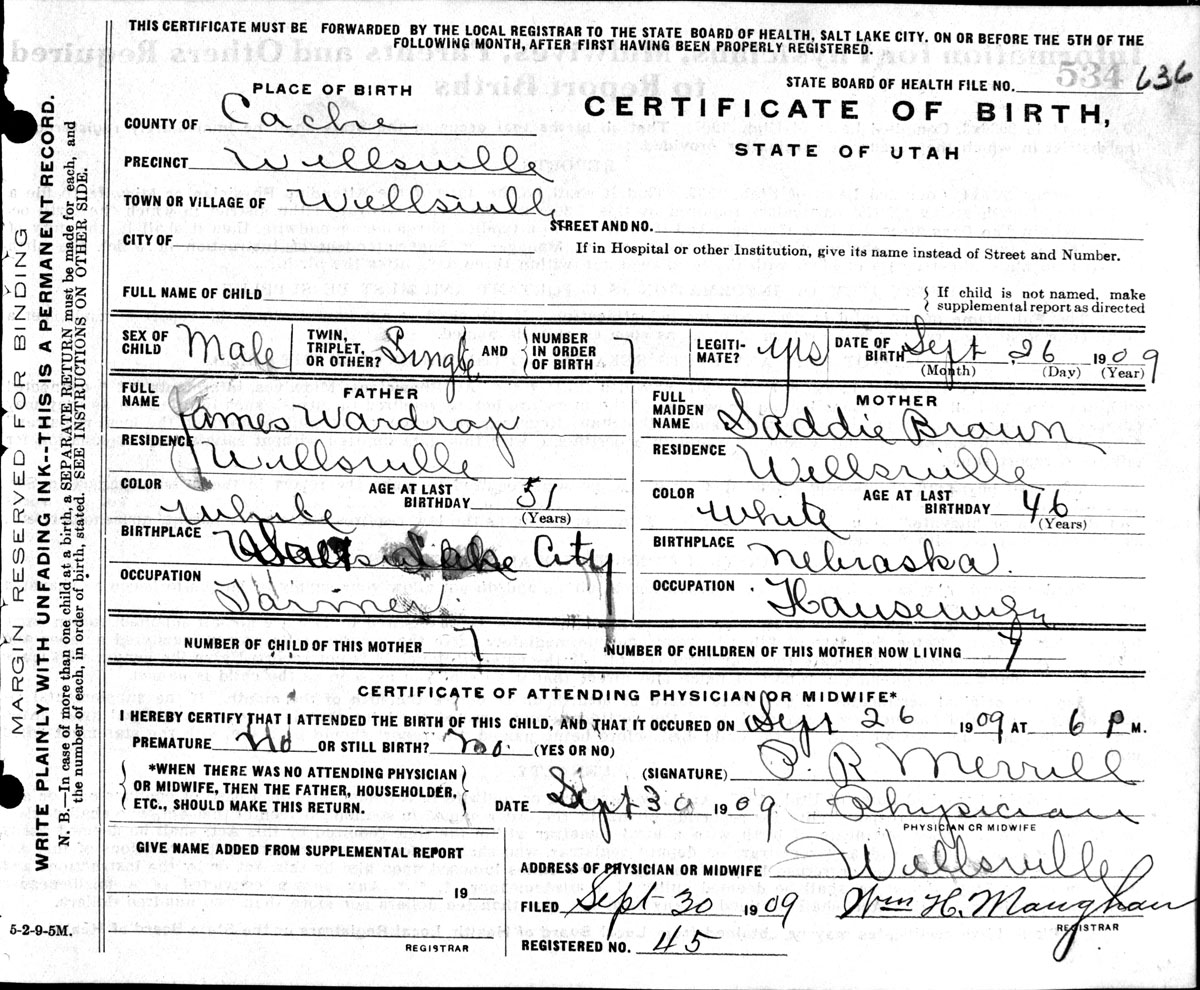 THIS CERTIFICATE MUST BE FORWARDED BY THE LOCAL REGISTRAR TO THE STATE BOARD OF HEALTH, SALT LAKE CITY. ON OR BEFORE THE 5TH OF THE
FOLLOWING MONTH, AFTER FIRST HAVING BEEN PROPERLY REGISTERED.
534
STATE BOARD OF HEALTH FILE NO. 636
PLACE OF BIRTH
CERTIFICATE OF BIRTH,
STATE OF UTAH
COUNTY OF Cache
PRECINCT Wellsville
TOWN OR VILLAGE OF Wellsville
STREET AND NO.
CITY OF
If in Hospital or other Institution, give its name instead of Street and Number.
FULL NAME OF CHILD
If child is not named, make
supplemental report as directed
SEX OF CHILD Male
TWIN, TRIPLET, OR OTHER? Single AND NUMBER IN ORDER OF BIRTH 7
LEGITIMATE? yes
DATE OF BIRTH Sept 26 1909
(Month) (Day) (Year)
FATHER
FULL NAME James Wardrop
RESIDENCE Wellsville
COLOR White AGE AT LAST BIRTHDAY 51
(Years)
BIRTHPLACE Lake City
OCCUPATION Farmer
MOTHER
FULL MAIDEN NAME Saddie Brown
RESIDENCE Wellsville
COLOR White AGE AT LAST BIRTHDAY 46
(Years)
BIRTHPLACE Nebraska.
OCCUPATION Housewife
NUMBER OF CHILD OF THIS MOTHER 7
NUMBER OF CHILDREN OF THIS MOTHER NOW LIVING 7
CERTIFICATE OF ATTENDING PHYSICIAN OR MIDWIFE*
I HEREBY CERTIFY THAT I ATTENDED THE BIRTH OF THIS CHILD, AND THAT IT OCCURED ON Sept 26 1909 AT 6 P M.
PREMATURE No OR STILL BIRTH? No. (YES OR NO)
*WHEN THERE WAS NO ATTENDING PHYSICIAN
OR MIDWIFE, THEN THE FATHER, HOUSEHOLDER,
ETC., SHOULD MAKE THIS RETURN.
(SIGNATURE) P. R Merrill
DATE Sept 30 1909 Physician
PHYSICIAN OR MIDWIFE
GIVE NAME ADDED FROM SUPPLEMENTAL REPORT
19
REGISTRAR
ADDRESS OF PHYSICIAN OR MIDWIFE Wellsville
FILED Sept 30 1909 Wm H. Maughan
REGISTRAR
REGISTERED NO. 45
5-2-9-5M.
MARGIN RESERVED FOR BINDING
WRITE PLAINLY WITH UNFADING INK--THIS IS A PERMANENT RECORD.
N. B.—In case of more than one child at a birth, a SEPARATE RETURN must be made for each, and
the number of each, in order of birth, stated. SEE INSTRUCTIONS ON OTHER SIDE.